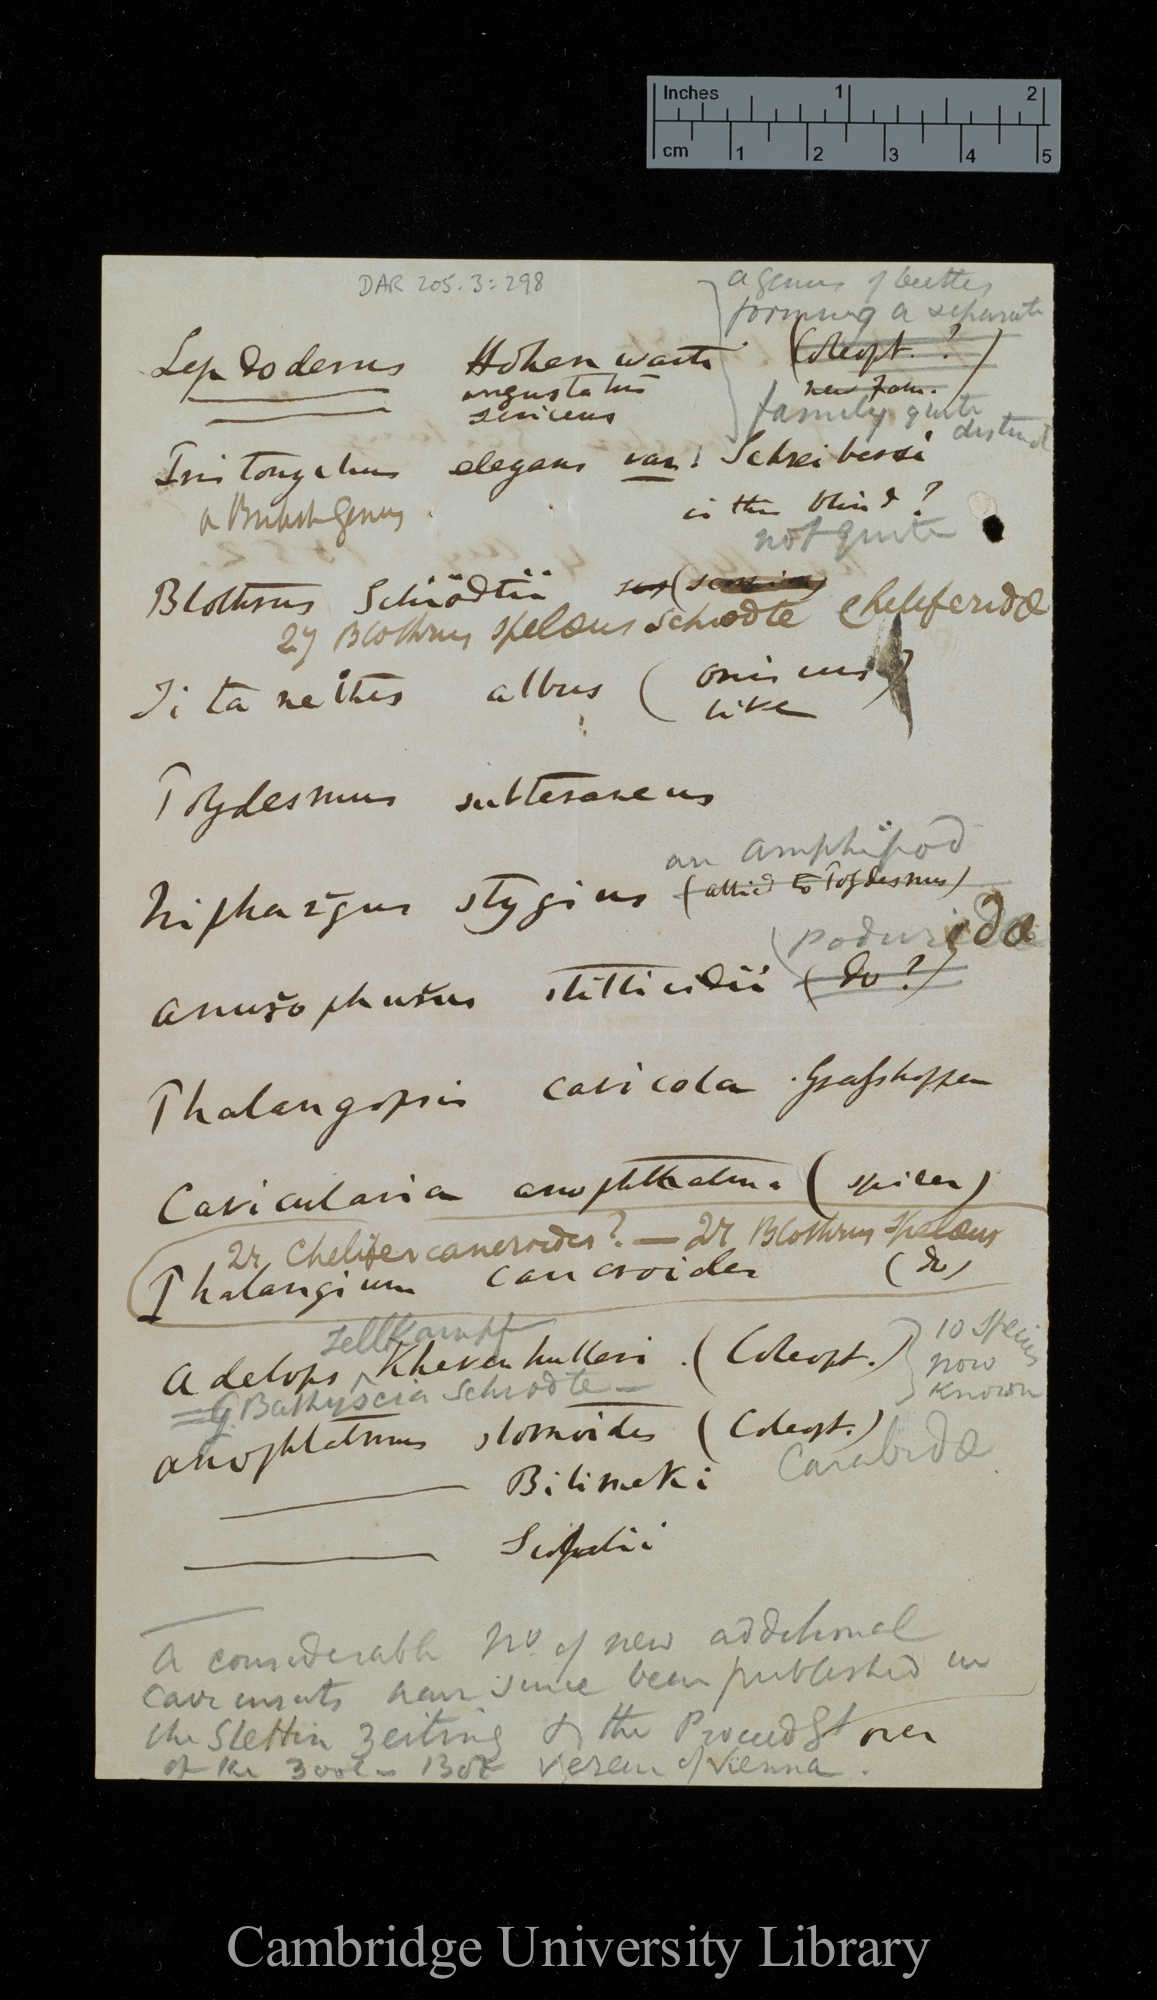 Inches 1 2
cm 1 2 3 4 5
DAR 205.3:298
a genus of beetles
forming a separate
Leptoderus Hohenwarti (Coleopt. ?)
angustatus new fam.
sericeus family quite
distinct
Tritonychus elegans var: Schreibersi
a British Genus. is this blind?
not quite
Blothrus Schiödtii
qy Blothrus spelæus Schiodte Cheliferidæ
Titanethes albus (oniscus
like)
Polydesmus subteraneus
an amphipod
Niphargus stygius (allied to Polydesmus)
Poduridæ
anurophurus stillicidii (do ?)
Phalangopsis cavicola Grasshopper
Cavicularia anophthalma (spider)
qr Chelifer cancroides? — qr Blothrus spelæus
Phalangium cancroides (do)
Zellkampf
Adelops ^ Khevenhulleri (Coleopt.) 10 species
now
known
= G. Bathyscia Schiodte —
anophtalmus slomoides (Coleopt.)
Carabidæ
—— Bilimeki
——
A considerable No of new additional
cave insects have since been published in
the Stettin Zeiting & the Proceedgs
over
of the Zool - Bot Verein of Vienna.
Cambridge University Library